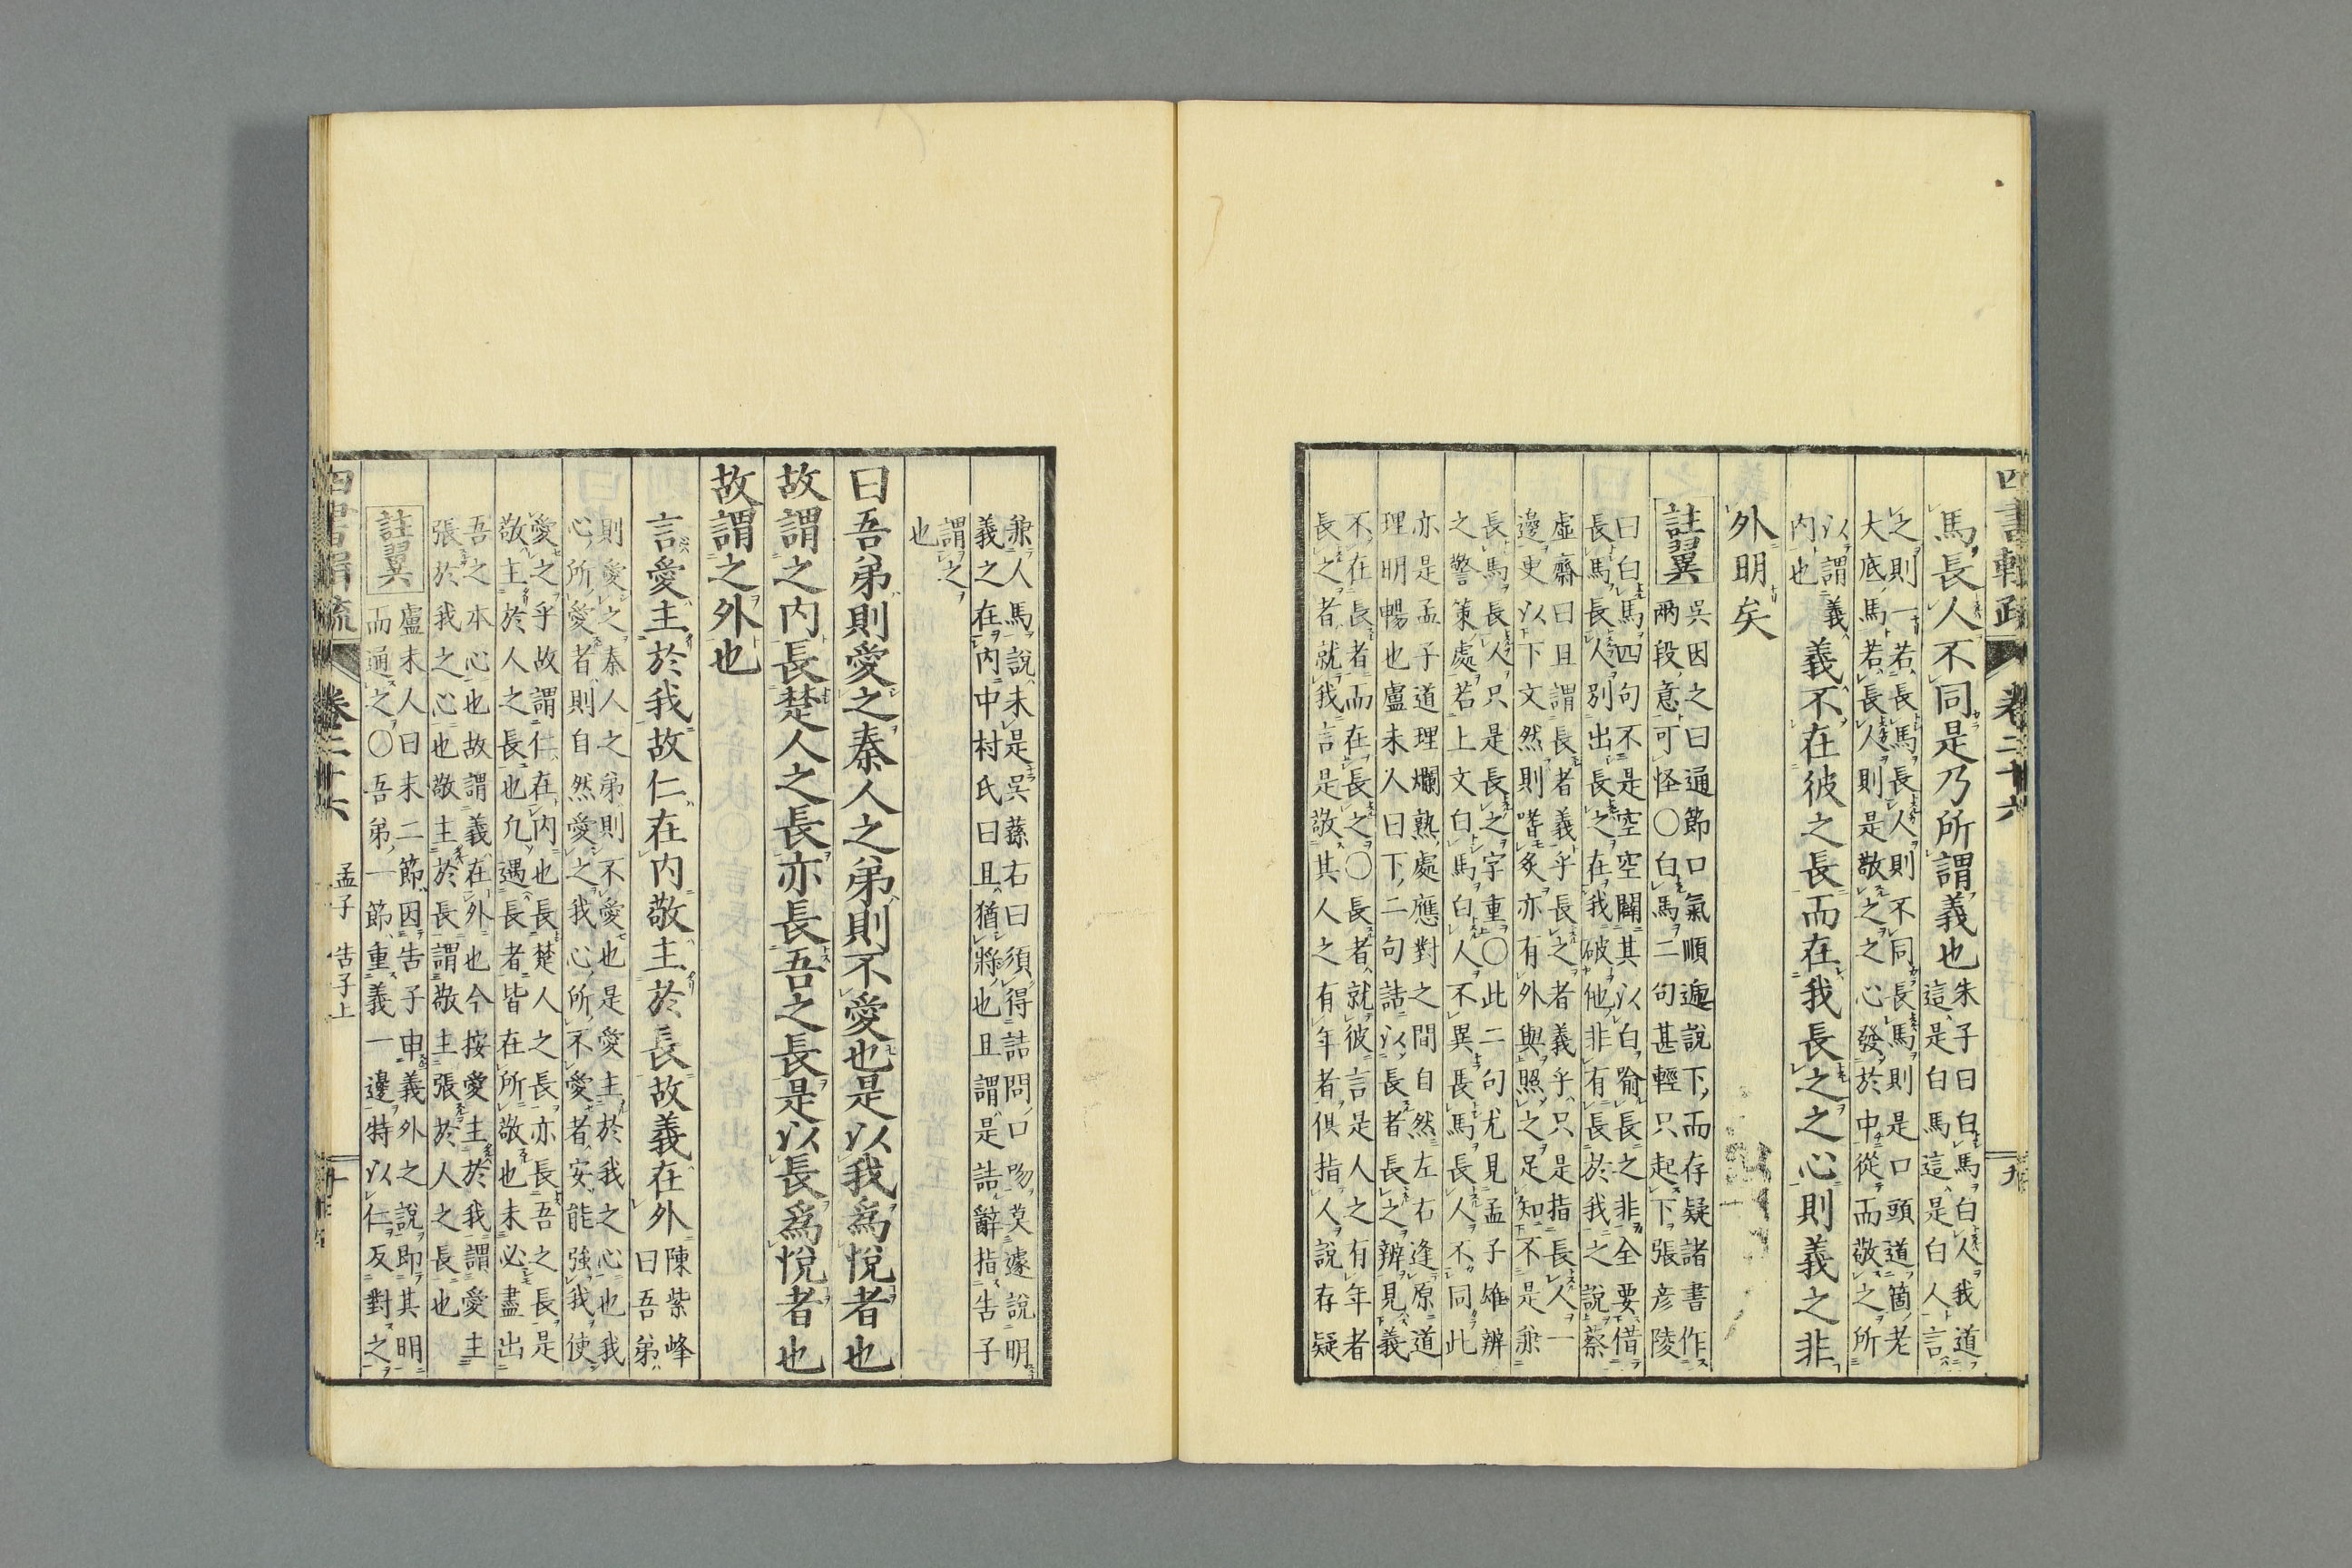 四書輯疏 卷二十六 九
馬長人不同是乃所謂義也
朱子曰白馬白人我道
這是白馬這是白人言
之則一若長馬長人則不同長馬則是口頭道箇老
大底馬若長人則是敬之之心發於中從而敬之所
以謂義
內也
義不在彼之長而在我長之之心則義之非
外明矣
註翼
吳因之曰通節口氣順遞說下而存疑諸書作
兩段意可怪〇白馬二句甚輕只起下張彥陵
曰白馬四句不是空空闢其以白喻長之非全要借
長馬長人別出長之在我破他非有長於我之說蔡
虛齋曰且謂長者義乎長之者義乎只是指長人一
邊吏以下文然則嗜炙亦有外與照之足知不是兼
長馬長人只是長之字重〇此二句尤見孟子雄辨
之警策處若上文白馬白人不異長馬長人不同此
亦是孟子道理爛熟處應對之間自然左右逢原道
理明暢也盧未人曰下二句詰以長者長之辨見義
不在長者而在長之〇長者就彼言是人之有年者
長之者就我言是敬其人之有年者俱指人說存疑
兼人馬說未是吳蓀右曰須得詰問口吻莫遽說明
義之在內中村氏曰且猶將也且謂是詰辭指告子
謂之
也
曰吾弟則愛之秦人之弟則不愛也是以我爲悅者也
故謂之內長楚人之長亦長吾之長是以長爲悅者也
故謂之外也
言愛主於我故仁在內敬主於長故義在外
陳紫峰
曰吾弟
則愛之秦人之弟則不愛也是愛主於我之心也我
心所愛者則自然愛之我心所不愛者安能強我使
愛之乎故謂仁在內也長楚人之長亦長吾之長是
敬主於人之長也凡遇長者皆在所敬也未必盡出
吾之本心也故謂義在外也今按愛主於我謂愛主
張於我之心也敬主於長謂敬主張於人之長也
註翼
盧未人曰末二節因告子申義外之說即其明
而通之〇吾弟一節重義一邊特以仁反對之
四書輯疏 卷二十六 孟子 告子上